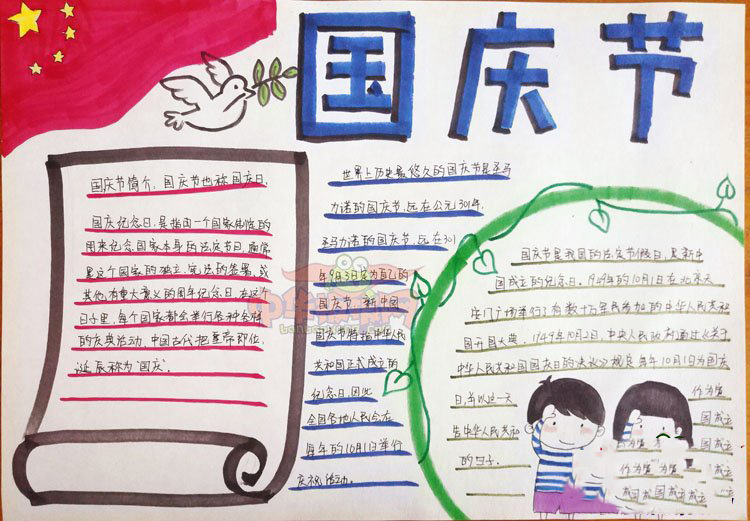 国庆节
国庆节简介、国庆节也称国庆日、
国庆纪念日,是指由一个国家制性的
用来纪念国家本身的法定节日,通常
是这个国家的独立、宪法的签署、或
其他有重大意义的周年纪念日、在这个
日子里,每个国家都会举行各种各样
的庆典活动,中国古代把皇帝即位、
诞辰称为"国庆"。
世界上历史最悠久的国庆节是圣马
力诺的国庆节,远在公元301年,
圣马力诺的国庆节,远在301
年9月3日定为自己的
国庆节、新中国
国庆节特指中华人民
共和国正式成立的
纪念日,因此
全国各地人民会在
每年的10月1日举行
庆祝活动。
国庆节是我国的法定节假日,是新中
国成立的纪念日。1949年的10月1日在北京天
安门广场举行了有数十万军民参加的中华人民共和
国开国大典。1749年10月2日,中央人民政府通过《关于
中华人民共和国国庆日的决议》规定每年10月1日为国庆
日,并以这一天
告中华人民共和
的日子。
作为宣
国成立